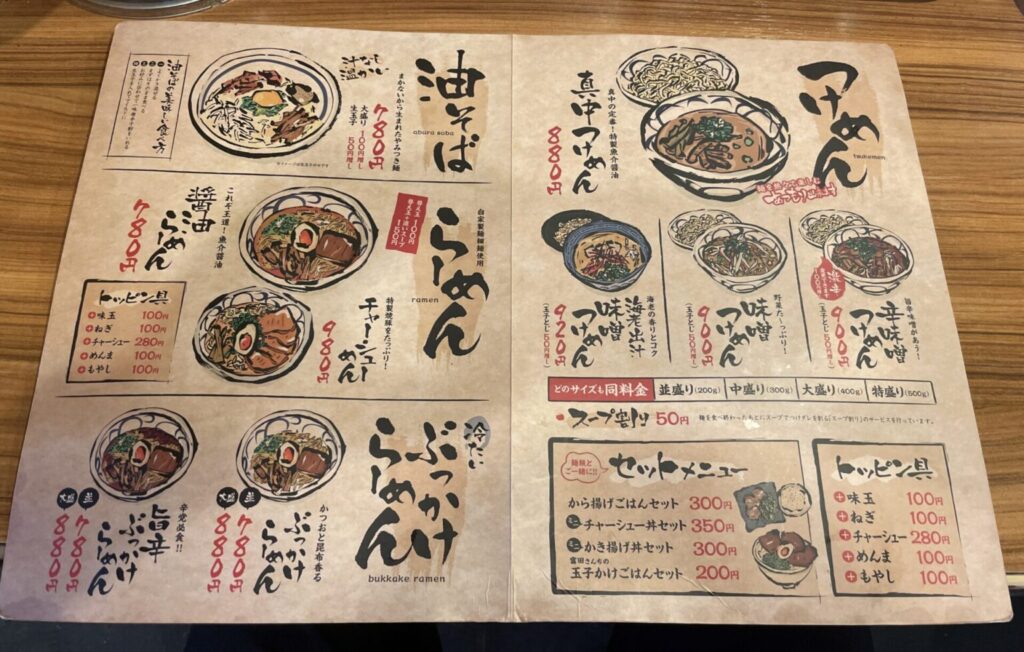 つけめん
tsukemen
真中の定番！特製魚介醤油
真中つけめん
880円
旨辛味噌があう！
辛味噌つけめん
900円
(玉子とじ50円増し)
激辛
野菜た〜っぷり！
味噌つけめん
900円
(玉子とじ50円増し)
海老の香りとコク
海老出汁味噌つけめん
920円
(玉子とじ50円増し)
どのサイズも同料金
並盛り(200g)
中盛り(300g)
大盛り(400g)
特盛り(500g)
スープ割り 50円
麺を食べ終わったあとにスープでつけダレを割る「スープ割り」のサービスを行っています。
麺類とご一緒に!!
セットメニュー
から揚げごはんセット 300円
ミニチャーシュー丼セット 350円
ミニかき揚げ丼セット 300円
富田さんちの
玉子かけごはんセット 200円
トッピン具
味玉 100円
ねぎ 100円
チャーシュー 280円
めんま 100円
もやし 100円
油そば
abura soba
まかないから生まれたやみつき麺
汁なし
温かい
780円
大盛り 100円増し
生玉子 50円増し
油そばの美味しい食べ方
※イメージは生玉子のせです
らーめん
ramen
自家製麺細麺使用
替え玉 100円
替え玉+追いスープ 150円
これぞ王道！魚介醤油
醤油らーめん
780円
特製焼豚をたっぷり！
チャーシューめん
980円
トッピン具
味玉 100円
ねぎ 100円
チャーシュー 280円
めんま 100円
もやし 100円
冷たい
ぶっかけらーめん
bukkake ramen
かつおと昆布香る
ぶっかけらーめん
並 780円
大盛 880円
辛党必食!!
旨辛ぶっかけらーめん
並 780円
大盛 880円